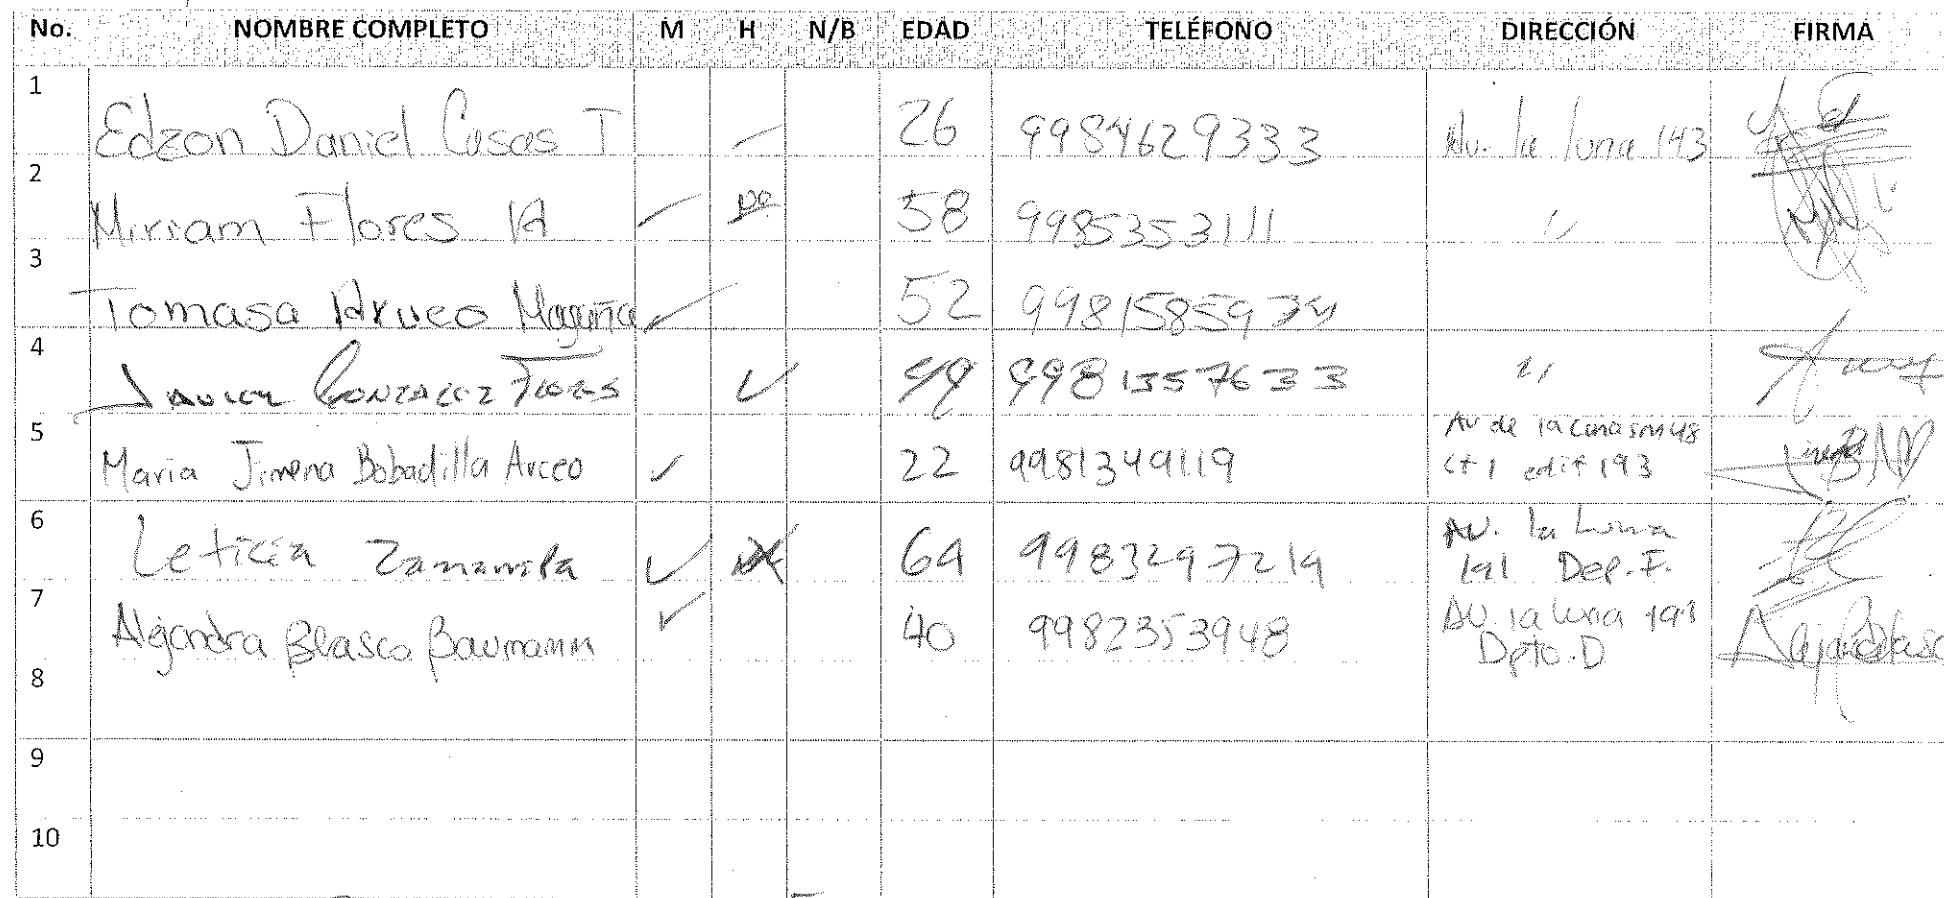 No. NOMBRE COMPLETO M H N/B EDAD TELÉFONO DIRECCIÓN FIRMA
1 Edzon Daniel Casas T 26 9984629333 Av. la luna 193
2 Miriam Flores 58 9985353111 "
3 Tomasa 52 9981585974
4 Javier Gonzalez Flores 49 9981357633 "
5 Maria Jimena Bobadilla Arceo 22 9981349119 Av de la luna sm48
ct 1 edif 193
6 Leticia 64 9983297219 AV. la Luna
191 Dep. F.
7 Alejandra Blasco Baumann 40 9982353948 AV. la luna 191
Dpto. D
8
9
10